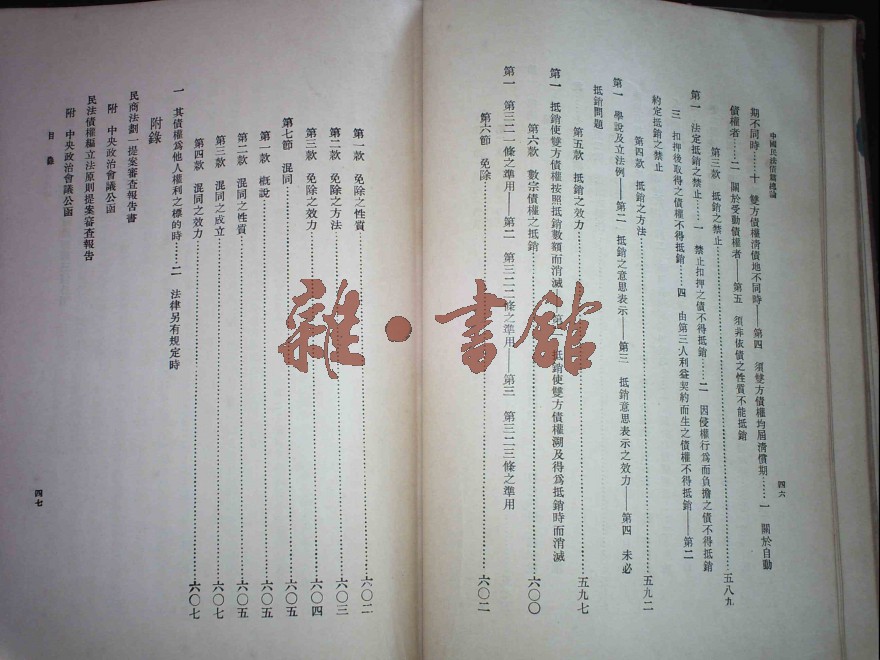 中國民法債篇總論
四六
期不同時……十 雙方債權清償地不同時——第四 須雙方債權均屆清償期……一 關於自動
債權者……二 關於受動債權者——第五 須非依債之性質不能抵銷
第三款 抵銷之禁止……五八九
第一 法定抵銷之禁止……一 禁止扣押之債不得抵銷……二 因侵權行爲而負擔之債不得抵銷
……三 扣押後取得之債權不得抵銷……四 由第三人利益契約而生之債權不得抵銷——第二
約定抵銷之禁止
第四款 抵銷之方法……五九二
第一 學說及立法例——第二 抵銷之意思表示——第三 抵銷意思表示之效力——第四 未必
抵銷問題
第五款 抵銷之效力……五九七
第一 抵銷使雙方債權按照抵銷數額而消滅——第 抵銷使雙方債權溯及得爲抵銷時而消滅
第六款 數宗債權之抵銷……六〇〇
第一 第三二一條之準用——第二 第三二二條之準用——第三 第三二三條之準用
第六節 免除……六〇二
第一款 免除之性質……六〇二
第二款 免除之方法……六〇三
第三款 免除之效力……六〇四
第七節 混同……六〇五
第一款 概說……六〇五
第二款 混同之性質……六〇五
第三款 混同之成立……六〇七
第四款 混同之效力……六〇七
一 其債權爲他人權利之標的時……二 法律另有規定時
附錄
民商法劃一提案審查報告書
附 中央政治會議公函
民法債權編立法原則提案審查報告
附 中央政治會議公函
目錄
四七
雜·書館